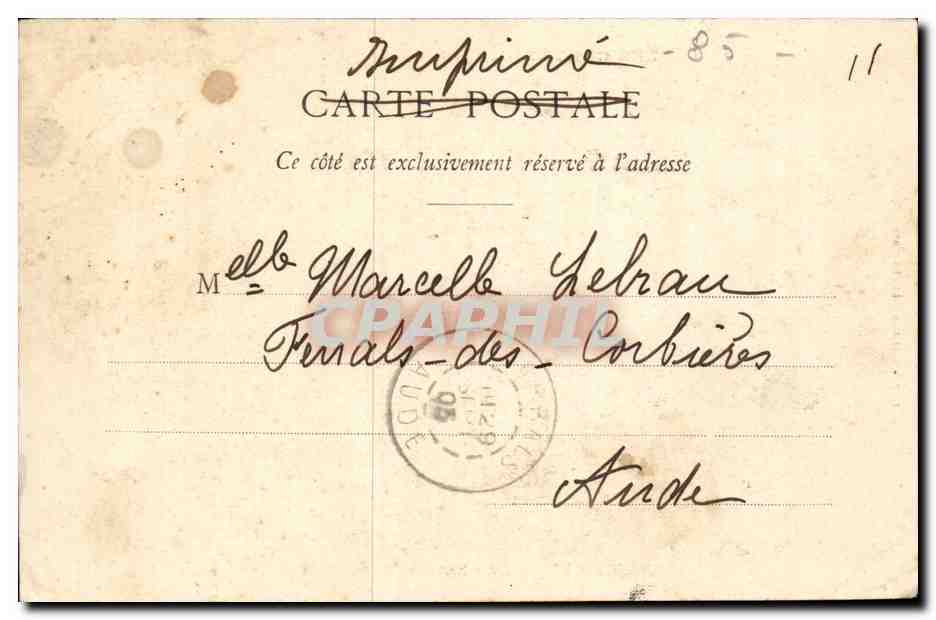 Imprimé - 85 - 11
CARTE POSTALE
Ce côté est exclusivement réservé à l'adresse
Melle Marcelle Lebrau
CPAPHIL
Ferrals-des-Corbières
AUDE
05
Aude